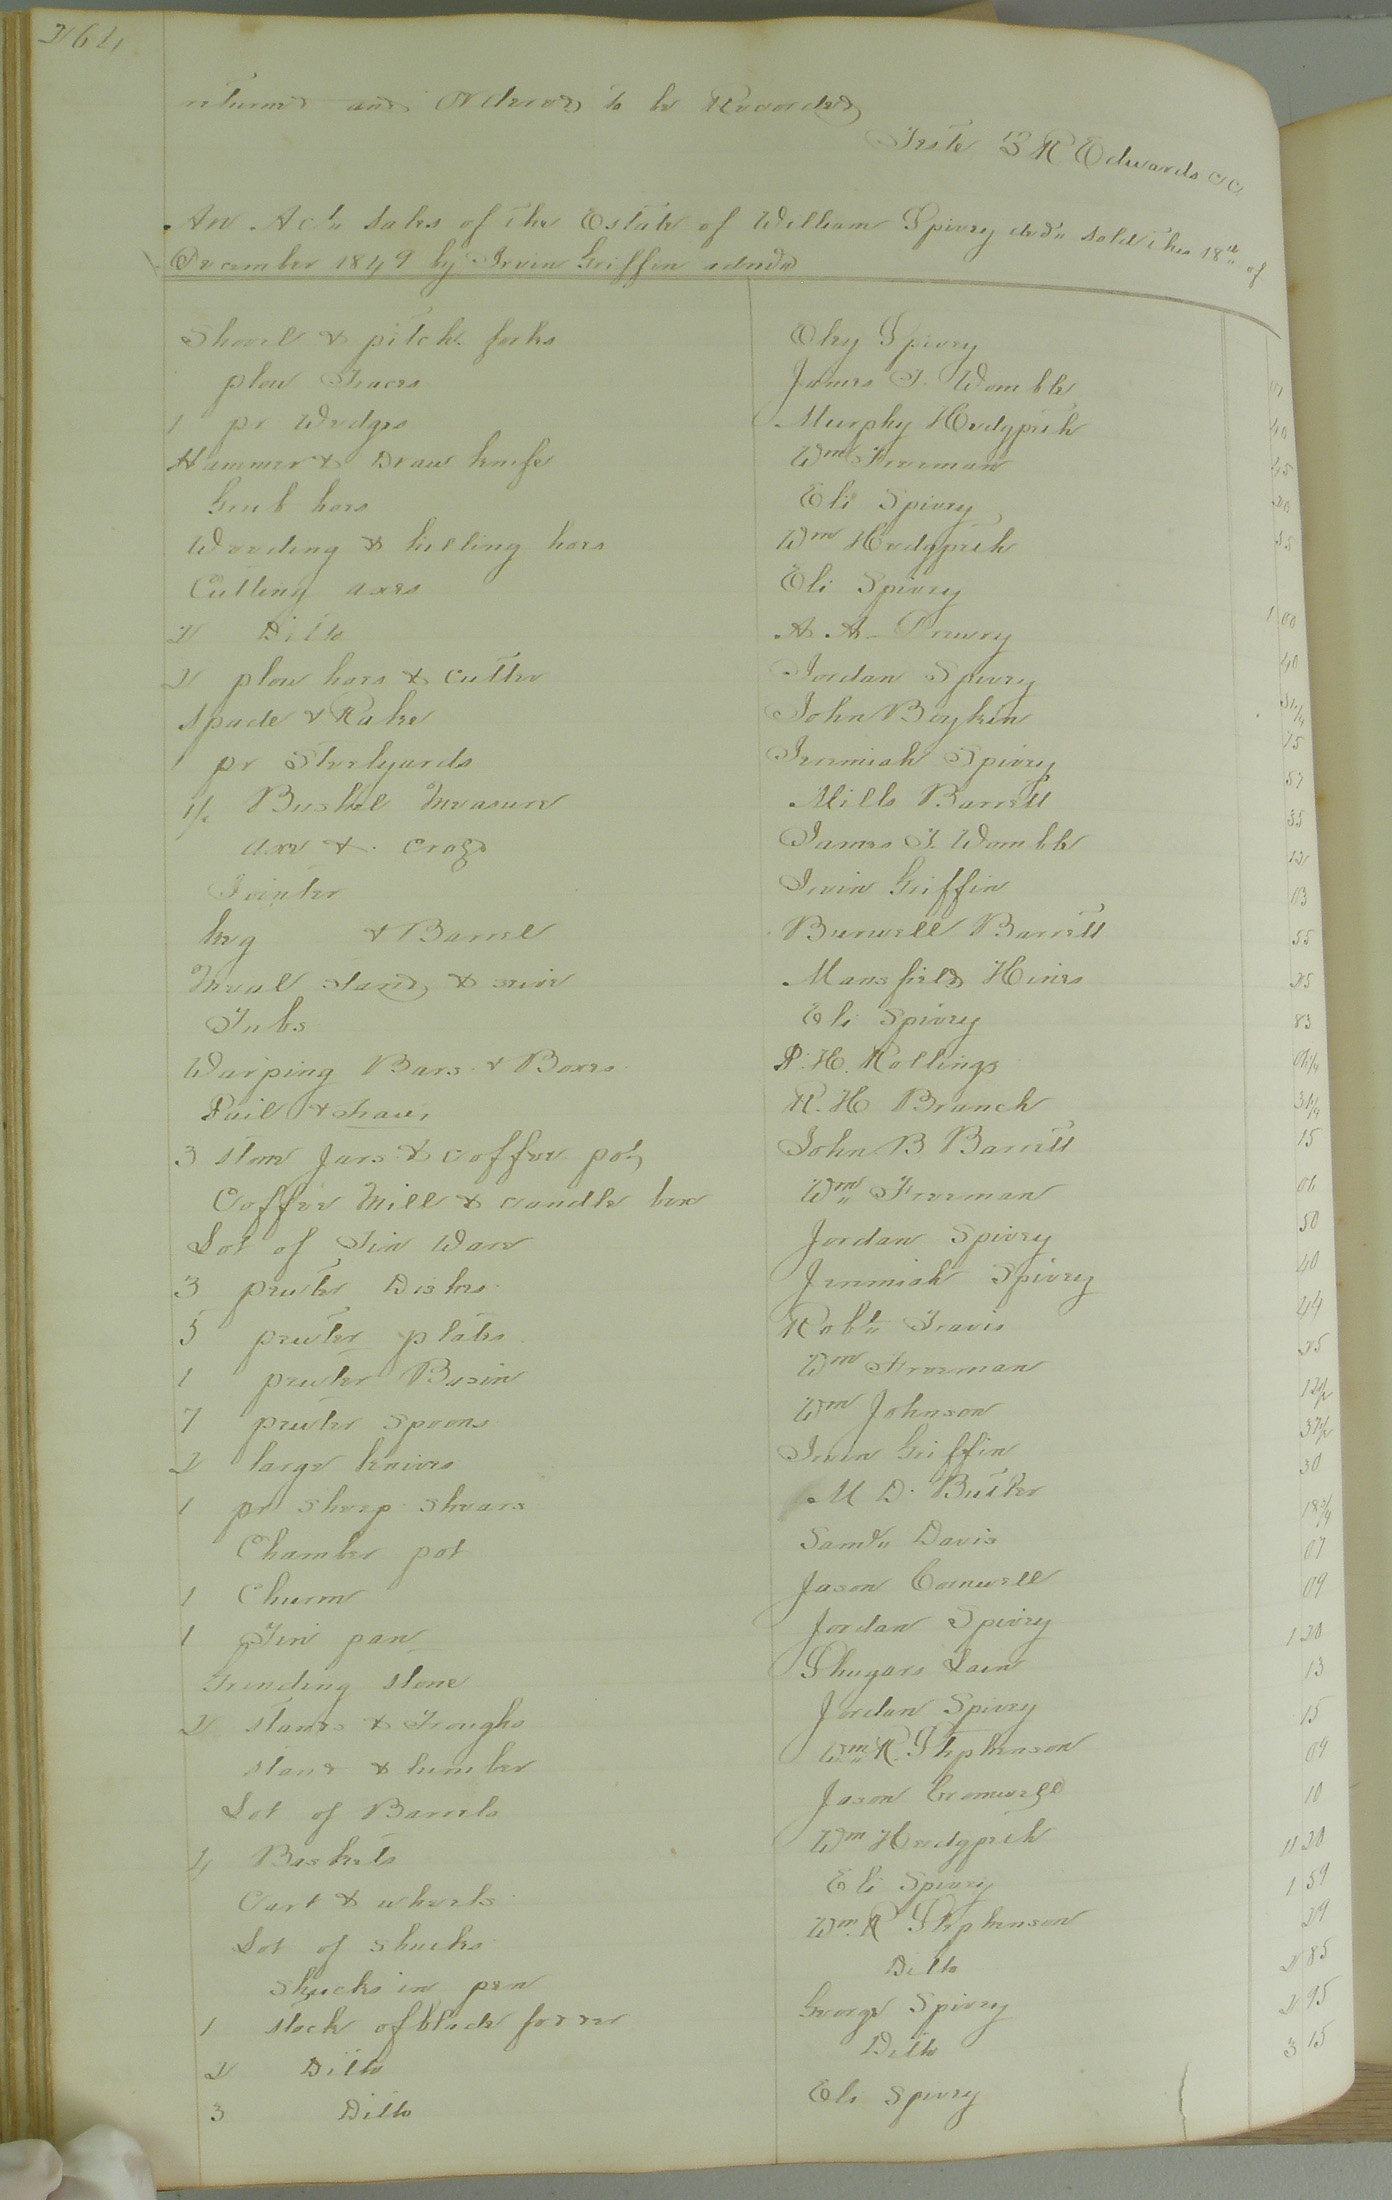 264
returned and Ordered to be Recorded
Teste B R Edwards CC
An Act" Sales of the Estate of William Spivey decd" sold this 18th of
December 1849 by Irvin Griffin admr
Shovel & pitch forks Elsy Spivey
plow Traces James T. Womble
1 pr Wedges Murphy Hedgpeth 40
Hammer & Draw knife Wm Freeman 45
Grub hoes Eli Spivey 20
Weeding & hilling hoes Wm Hedgpeth 55
Cutting axes Eli Spivey 1 00
2 Ditto A. A. 40
2 plow hoes & Cutter Jordan Spivey 31 1/4
Spade & Rake John Boykin 75
1 pr Steelyards Jeremiah Spivey 57
1/2 Bushel Measure Mills Barrett 35
axe & Croze James T. Womble 12
Jointer Irvin Griffin 03
keg & Barrel Burwell Barrett 55
Meal stand & seive Mansfield Hines 25
Tubs Eli Spivey 83
Warping Bars & Boxes P. H. Rollings 06 1/4
Pail & R. H Branch 31 1/4
3 stone Jars & coffee pot John B Barrett 15
Coffee Mill & candle box Wm Freeman 06
Lot of Tin Ware Jordan Spivey 50
3 pewter Dishes Jeremiah Spivey 40
5 pewter plates Robt" Travis 44
1 pewter Basin Wm Freeman 25
7 pewter Spoons Wm Johnson 12 1/2
2 large knives Irvin Griffin 37 1/2
1 pr Sheep Shears M D. Butler 30
Chamber pot Saml" Davis 18 3/4
1 Churn Jason Cornwell 07
1 Tin pan Jordan Spivey 09
Grinding Stone Shugars Lain 1 20
2 stands & Troughs Jordan Spivey 13
stand & lumber Wm R. Stephenson 15
Lot of Barrels Jason Cromwell 09
4 Baskets Wm Hedgpeth 10
Cart & wheels Eli Spivey 11 20
Lot of shucks Wm. R Stephenson 1 59
Shucks in pen Ditto 29
1 stack of blade fodder George Spivey 2 85
2 Ditto Ditto 2 95
3 Ditto Eli Spivey 3 15